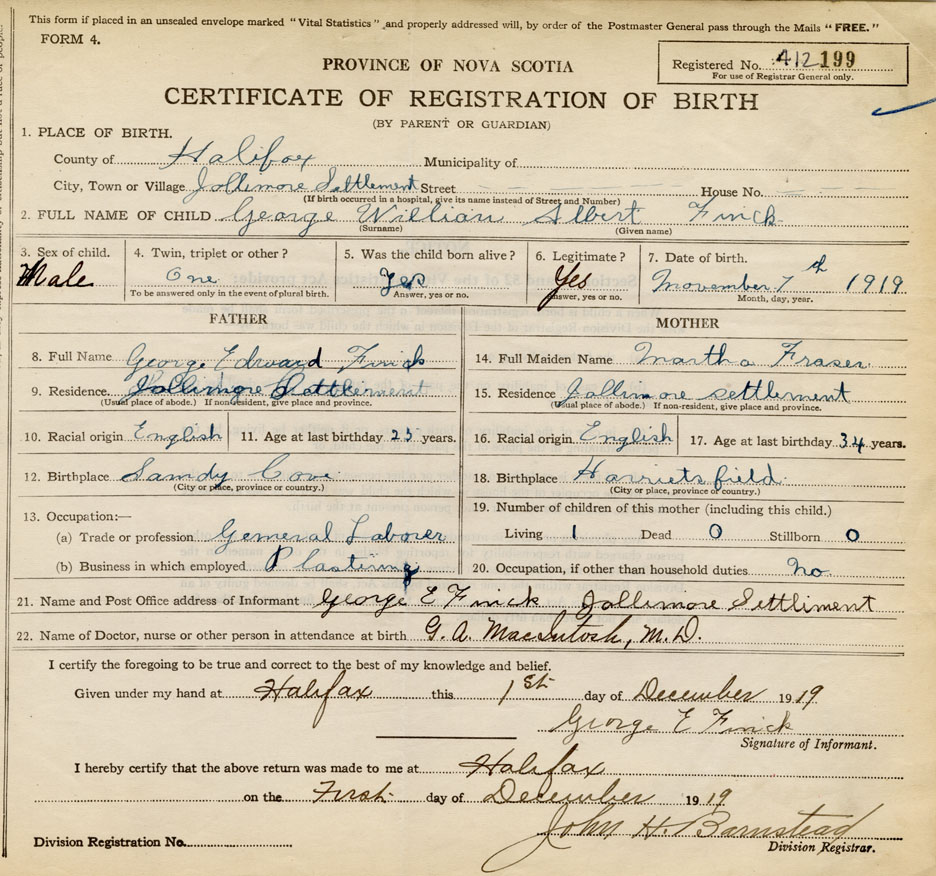 This form if placed in an unsealed envelope marked "Vital Statistics" and properly addressed will, by order of the Postmaster General pass through the Mails "FREE."
FORM 4.
Registered No. 412199
For use of Registrar General only.
PROVINCE OF NOVA SCOTIA
CERTIFICATE OF REGISTRATION OF BIRTH
(BY PARENT OR GUARDIAN)
1. PLACE OF BIRTH.
County of Halifax Municipality of
City, Town or Village Jollimore Settlement Street House No.
(If birth occurred in a hospital, give its name instead of Street and Number)
2. FULL NAME OF CHILD George William Albert Finck
(Surname) (Given name)
3. Sex of child. 4. Twin, triplet or other? 5. Was the child born alive? 6. Legitimate? 7. Date of birth.
Male One Yes Yes November 7th 1919
To be answered only in the event of plural birth. Answer, yes or no. Answer, yes or no. Month, day, year.
FATHER
8. Full Name George Edward Finck
9. Residence Jollimore Settlement
(Usual place of abode.) If non-resident, give place and province.
10. Racial origin English 11. Age at last birthday 23 years.
12. Birthplace Sandy Cove
(City or place, province or country.)
13. Occupation:—
(a) Trade or profession General Laborer
(b) Business in which employed Plastering
MOTHER
14. Full Maiden Name Martha Fraser
15. Residence Jollimore settlement
(Usual place of abode.) If non-resident, give place and province.
16. Racial origin English 17. Age at last birthday 34 years.
18. Birthplace Harrietsfield
(City or place, province or country.)
19. Number of children of this mother (including this child.)
Living 1 Dead 0 Stillborn 0
20. Occupation, if other than household duties. no
21. Name and Post Office address of Informant George E Finck Jollimore Settliment
22. Name of Doctor, nurse or other person in attendance at birth G. A. MacIntosh, M.D.
I certify the foregoing to be true and correct to the best of my knowledge and belief.
Given under my hand at Halifax this 1st day of December 1919
George E Finck
Signature of Informant.
I hereby certify that the above return was made to me at Halifax
on the First day of December 1919
John H. Barnstead
Division Registration No. Division Registrar.